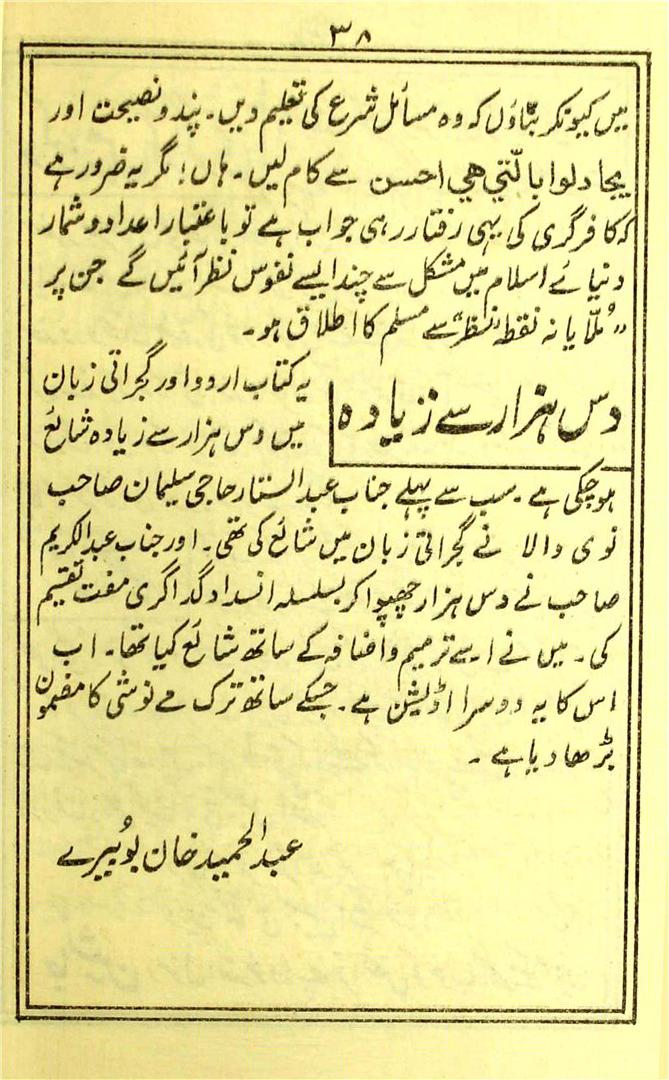 ۳۸
میں کیونکر بتاؤں کہ وہ مسائل شرع کی تعلیم دیں۔ پند و نصیحت اور
یجادلوا بالتي هي احسن سے کام لیں۔ ہاں! مگر یہ ضرور ہے
کہ کافر گری کی یہی رفتار رہی جو اب ہے تو باعتبار اعداد و شمار
دنیائے اسلام میں مشکل سے چند ایسے نفوس نظر آئیں گے جن پر
"مُلّایانہ نقطہ نظر" سے مسلم کا اطلاق ہو۔
دس ہزار سے زیادہ
یہ کتاب اردو اور گجراتی زبان
میں دس ہزار سے زیادہ شائع
ہوچکی ہے۔ سب سے پہلے جناب عبدالستار حاجی سلیمان صاحب
نوی والا نے گجراتی زبان میں شائع کی تھی۔ اور جناب عبدالکریم
صاحب نے دس ہزار چھپوا کر بسلسلہ انسداد گداگری مفت تقسیم
کی۔ میں نے اسے ترمیم و اضافہ کے ساتھ شائع کیا تھا۔ اب
اس کا یہ دوسرا اڈیشن ہے۔ جسکے ساتھ ترک مے نوشی کا مضمون
بڑھا دیا ہے۔
عبدالحمید خان بوبیرے